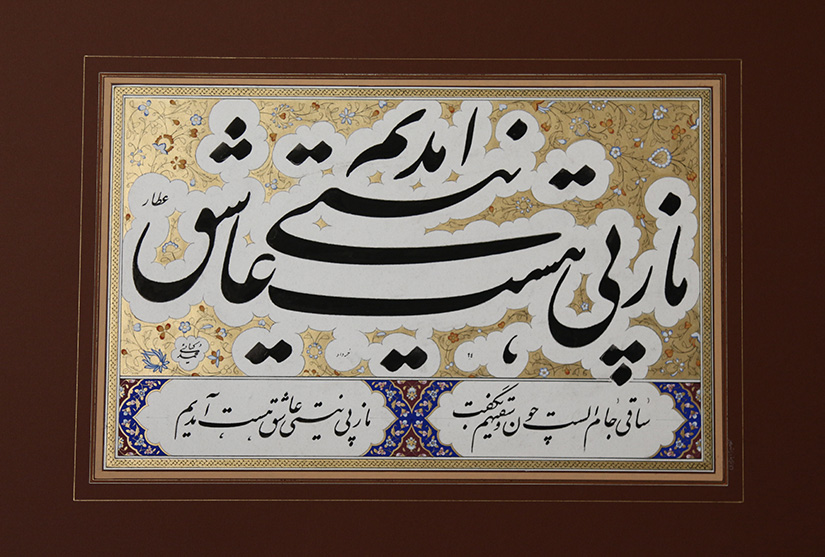 ما ز پی نیستی عاشق هست آمدیم
عطار
ساقی جام الست چون وسقیهم بگفت
ما ز پی نیستی عاشق هست آمدیم